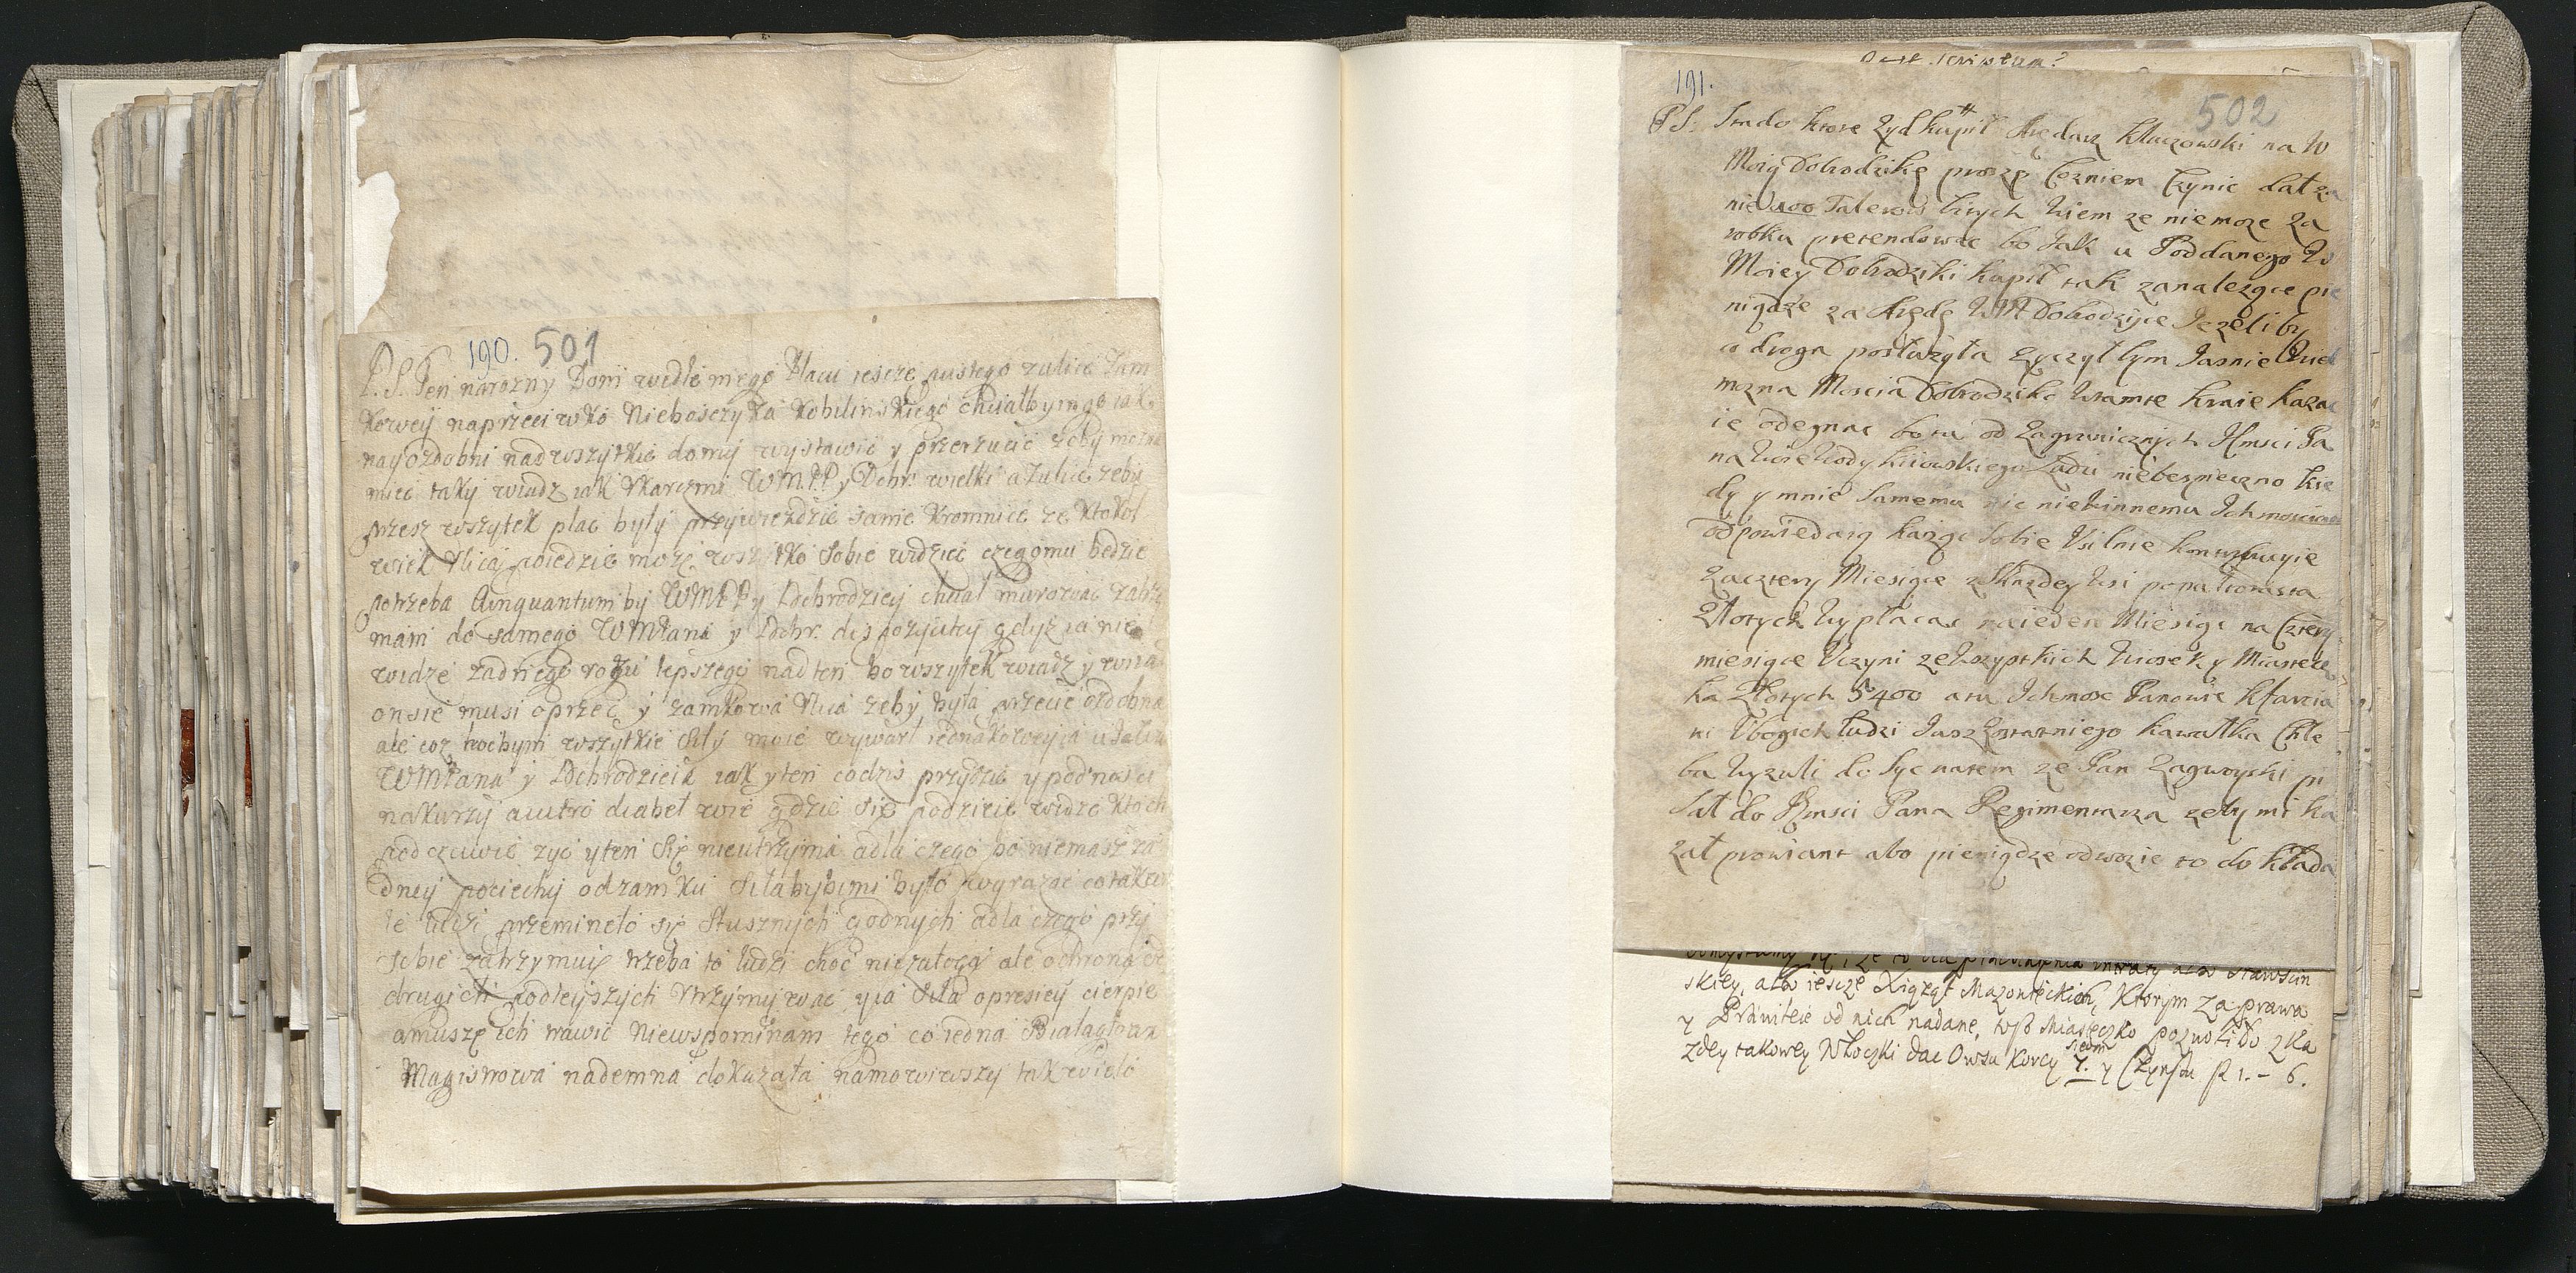 190. 501
P. S. Ten narozny Dom wedle mego Placu iescze pustego zulice Zam
kowey naprzeciwko Nieboszczyka Kobilinskiego chciałbym go iak
nayozdobni nadwszytkie domy wystawić y przerzucic zeby mozna
miec taky wiadz iak Karczmi WMPP y Dobr. wielki azulice zeby
przesz wszytek plac były przyiezdzie same Kromnice ze Ktokol
wiek Ulicą poiedzie moze wszytko sobie widziec czegomu bedzie
potrzeba Inquantum by WMPP y Dobrodziey chciał murowac
mam do samego WMPana y Dobr. dispozyciey gdyz ia nie
widze zadnego rogu lepszego nadten bo wszytek wiadz y
onsie musi oprzec y zamkowa Ulica zeby była przecie ozdobna
ale coz chocbym wszytkie siły moie wywarł iednakowey ia
WMPana y Dobrodzieia iak yten codzis przydzie ypodnosci
nakurzy aiutro diabeł wie gdzie się podzieie widze
podczciwie zyc yten się nieutrzyma adla czego bo niemasz za
dney pociechy odzamku siłabybymi było wyrazac
le ludzi przemineło się słusznych godnych adla czego przy
sobie zatrzymuię trzeba to ludzi choc niezałogą ale ochroną
drugich podleyszych utrzymywac yia siła opresiey cierpie
amuszę ich trawic Niewspominam tego co iedna Białagłowa
Magistrowa nademna dokazała namowiwszy tak wiele
Post scriptum?
191.
502
PS. Stado ktore Zyd kupił Arędarz Kłaczowski na W
Moią Dobrodzikę proszę Czniem Czynic dał za
nie 100 Talerow ktych Wiem ze niemoze Za
robku pretendowac bo Jak u Poddanego W
Moiey Dobrodziki kupił tak zanalezące pie
niądze za Arędę WM Dobrodziice Jezeli by
co droga posłuzyła zyczył bym Jasnie Wiel
mozna Moscia Dobrodziko Wtamte kraie kazac
ie odegnac bo tu od Zagranicznych Jmsci Pa
na Woiewody Kiiowskiego Ludzi niebezpieczno kie
dy y mnie Samemu nic niewinnemu Ichmosciowie
odpowiedaią kazge Sobie Usilnie
Zacztery Miesiące zKazdey Wsi popułtorasta
Złotych Wypłacac naieden Miesiąc na Cztery
miesiące Uczyni zeWszystkich Wiosek y Miastecz
ka Złotych 5400 a tu Ichmosc Panowie Kwarcia
ni Ubogich ludzi Jusz Zostatniego kawałka Chle
ba Wyzuli do syc natem ze Pan Zagwoyski pi
sał do Jmsci Pana Regimentarza zeby mi ka
zał prowiant abo pieniądze odwozic to do kłada
skiey, albo iescze Xiąząt Mazowieckich, Ktorym za prawa
y Prziwileie od nich nadane, tosz Miasteczko pozwoliło zka
zdey takowey Włoczki dac Owsa Korcy siedm 7. y Czynszu fl 1. - 6.